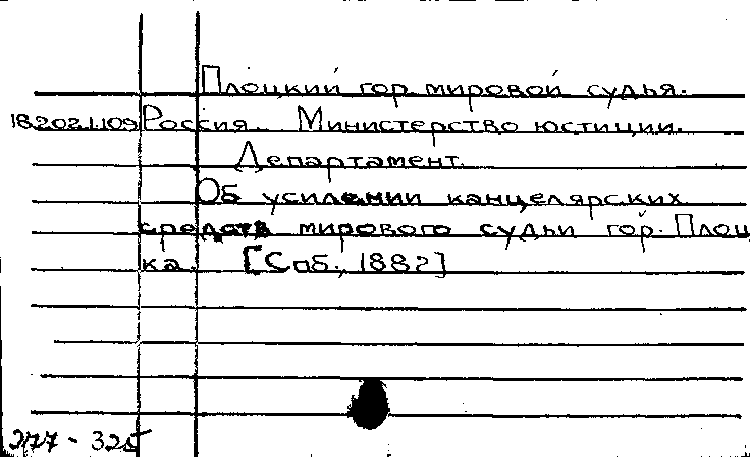 Плоцкий гор. мировой судья.
18.202.1.109 Россия. Министерство юстиции.
Департамент.
Об усилении канцелярских
средств мирового судьи гор. Плоц
ка. [Спб., 1882]
277 - 325